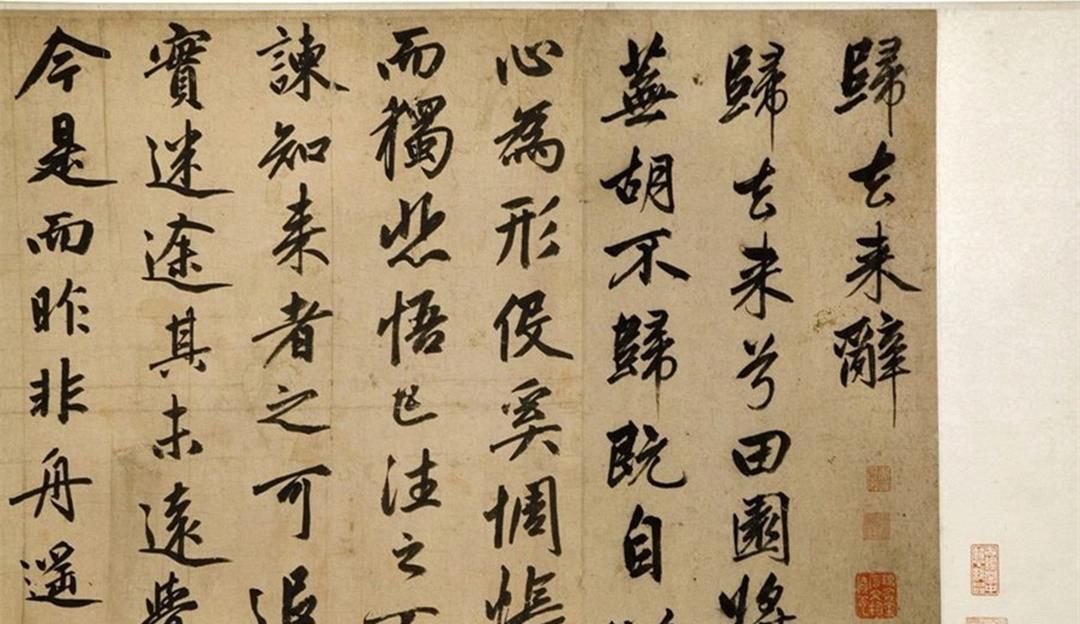 歸去来辭
歸去来兮田園將
蕪胡不歸既自
心為形役奚惆悵
而獨悲悟已往之
諫知来者之可追
實迷途其未遠覺
今是而昨非舟遥